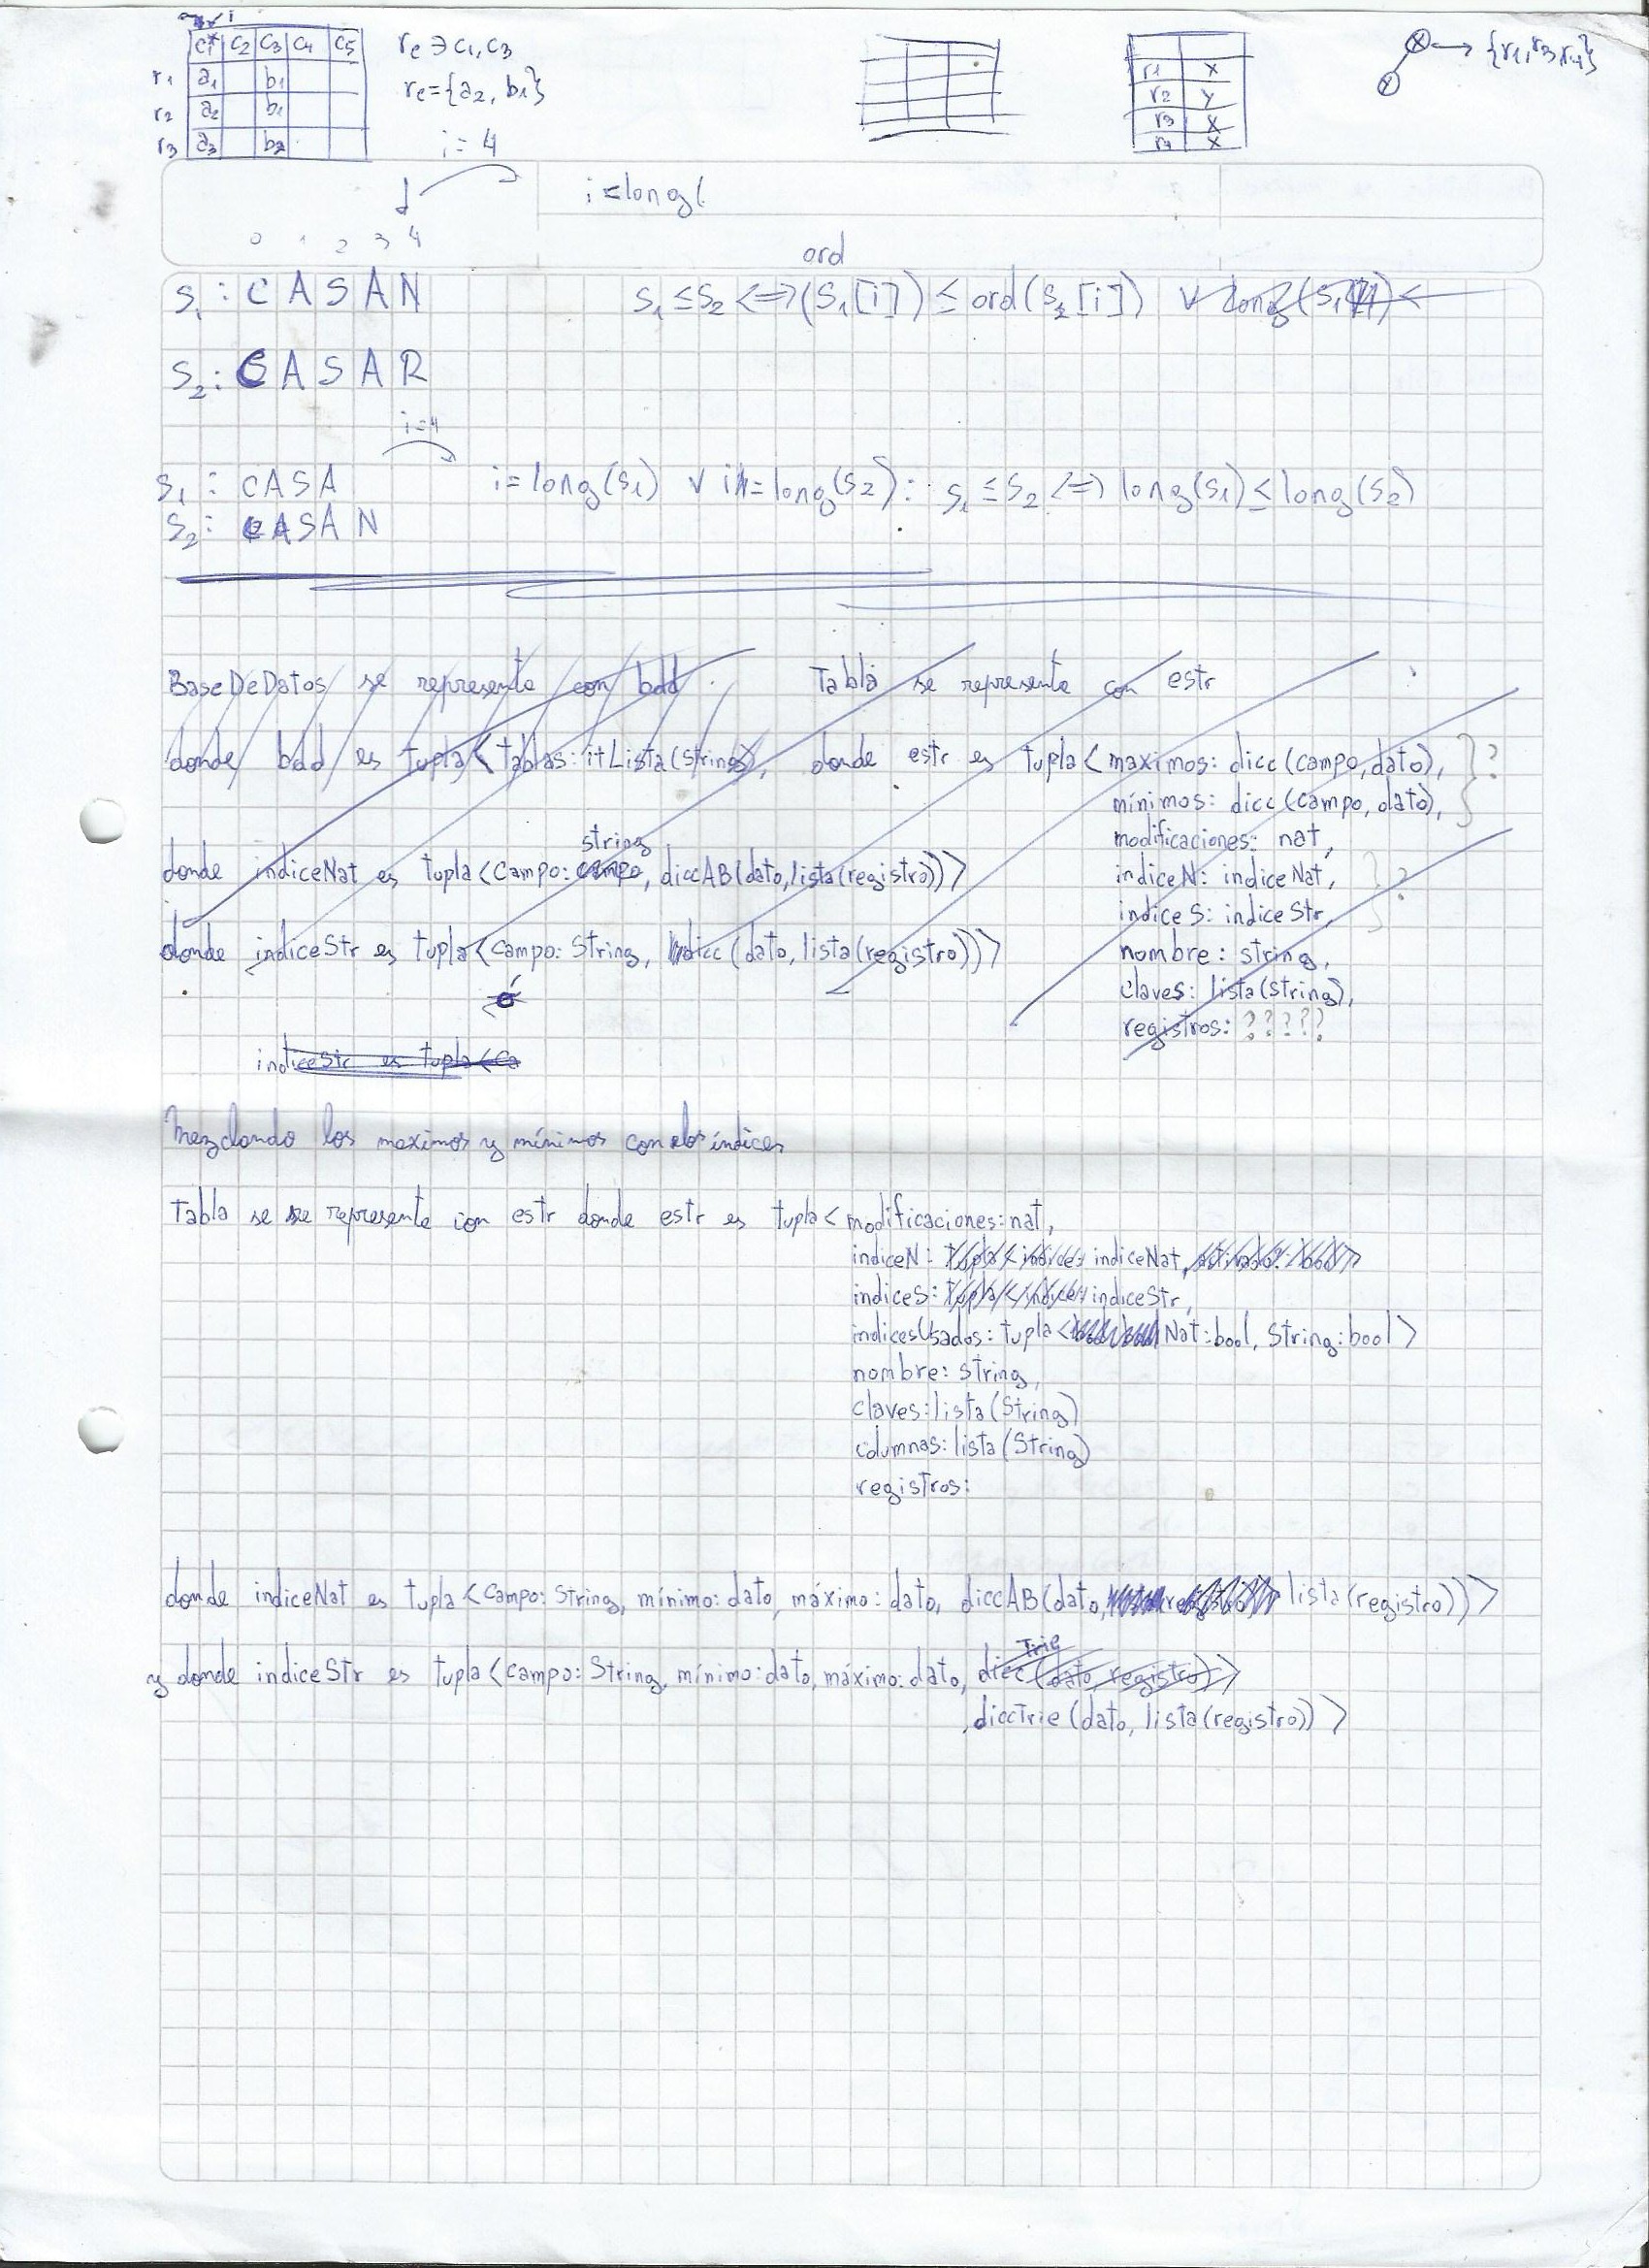 c1* c2 c3 c4 c5
r1 a1 b1
r2 a2 b1
r3 a3 b2
rc ∋ c1, c3
rc = {a2, b1}
r1 x
r2 y
r3 x
r4 x
x → {r1, r3, r4}
y
i = 4
i = long(
0 1 2 3 4
ord
S1 : C A S A N
S1 ≤ S2 <=> (S1[i]) ≤ ord(S2[i]) ∨ long(S1) <
S2 : C A S A R
i=4
S1 : CASA
i = long(S1) ∨ i = long(S2) : S1 ≤ S2 <=> long(S1) ≤ long(S2)
S2 : CASAN
BaseDeDatos se representa con bdd
donde bdd es tupla<tablas: itLista(string),
donde indiceNat es tupla<campo: campo string, diccAB(dato, lista(registro))>
donde indiceStr es tupla<campo: String, dicc(dato, lista(registro))>
ó
indiceStr es tupla<Ca
Tabla se representa con estr
donde estr es tupla<maximos: dicc(campo, dato), } ?
mínimos: dicc(campo, dato),
modificaciones: nat,
indiceN: indiceNat, } ?
indiceS: indiceStr,
nombre: string,
claves: lista(string),
registros: ?????
Mezclando los maximos y mínimos con los índices
Tabla se representa con estr donde estr es tupla<modificaciones: nat,
indiceN: tupla<indice: indiceNat, activado: bool>
indiceS: tupla<indice: indiceStr,
indicesUsados: tupla<Nat: bool, String: bool>
nombre: string,
claves: lista(String)
columnas: lista(String)
registros:
donde indiceNat es tupla<campo: String, mínimo: dato, máximo: dato, diccAB(dato, lista(registro))>
y donde indiceStr es tupla<campo: String, mínimo: dato, máximo: dato, diccTrie(dato, registro)>
,diccTrie(dato, lista(registro))>